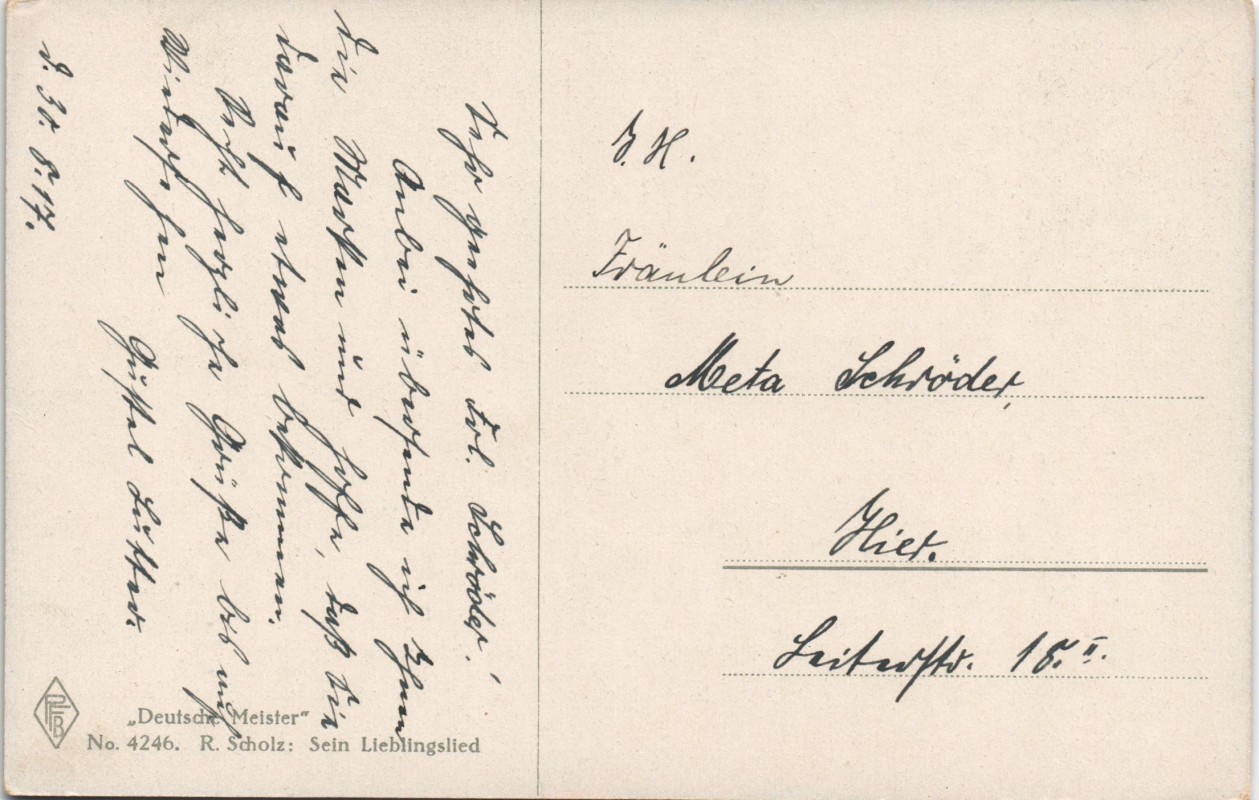 d. 30. 8. 17.
Sehr geehrtes Frl. Schröder!
Anbei übersende ich Ihnen
die Marken und hoffe, daß Sie
darauf etwas bekommen.
Recht herzliche Grüße bis auf
Wiedersehen
Gustel Lütter.
J. H.
Fräulein
Meta Schröder,
Hier.
Leiterstr. 18. II.
PFB
„Deutsche Meister"
No. 4246. R. Scholz: Sein Lieblingslied